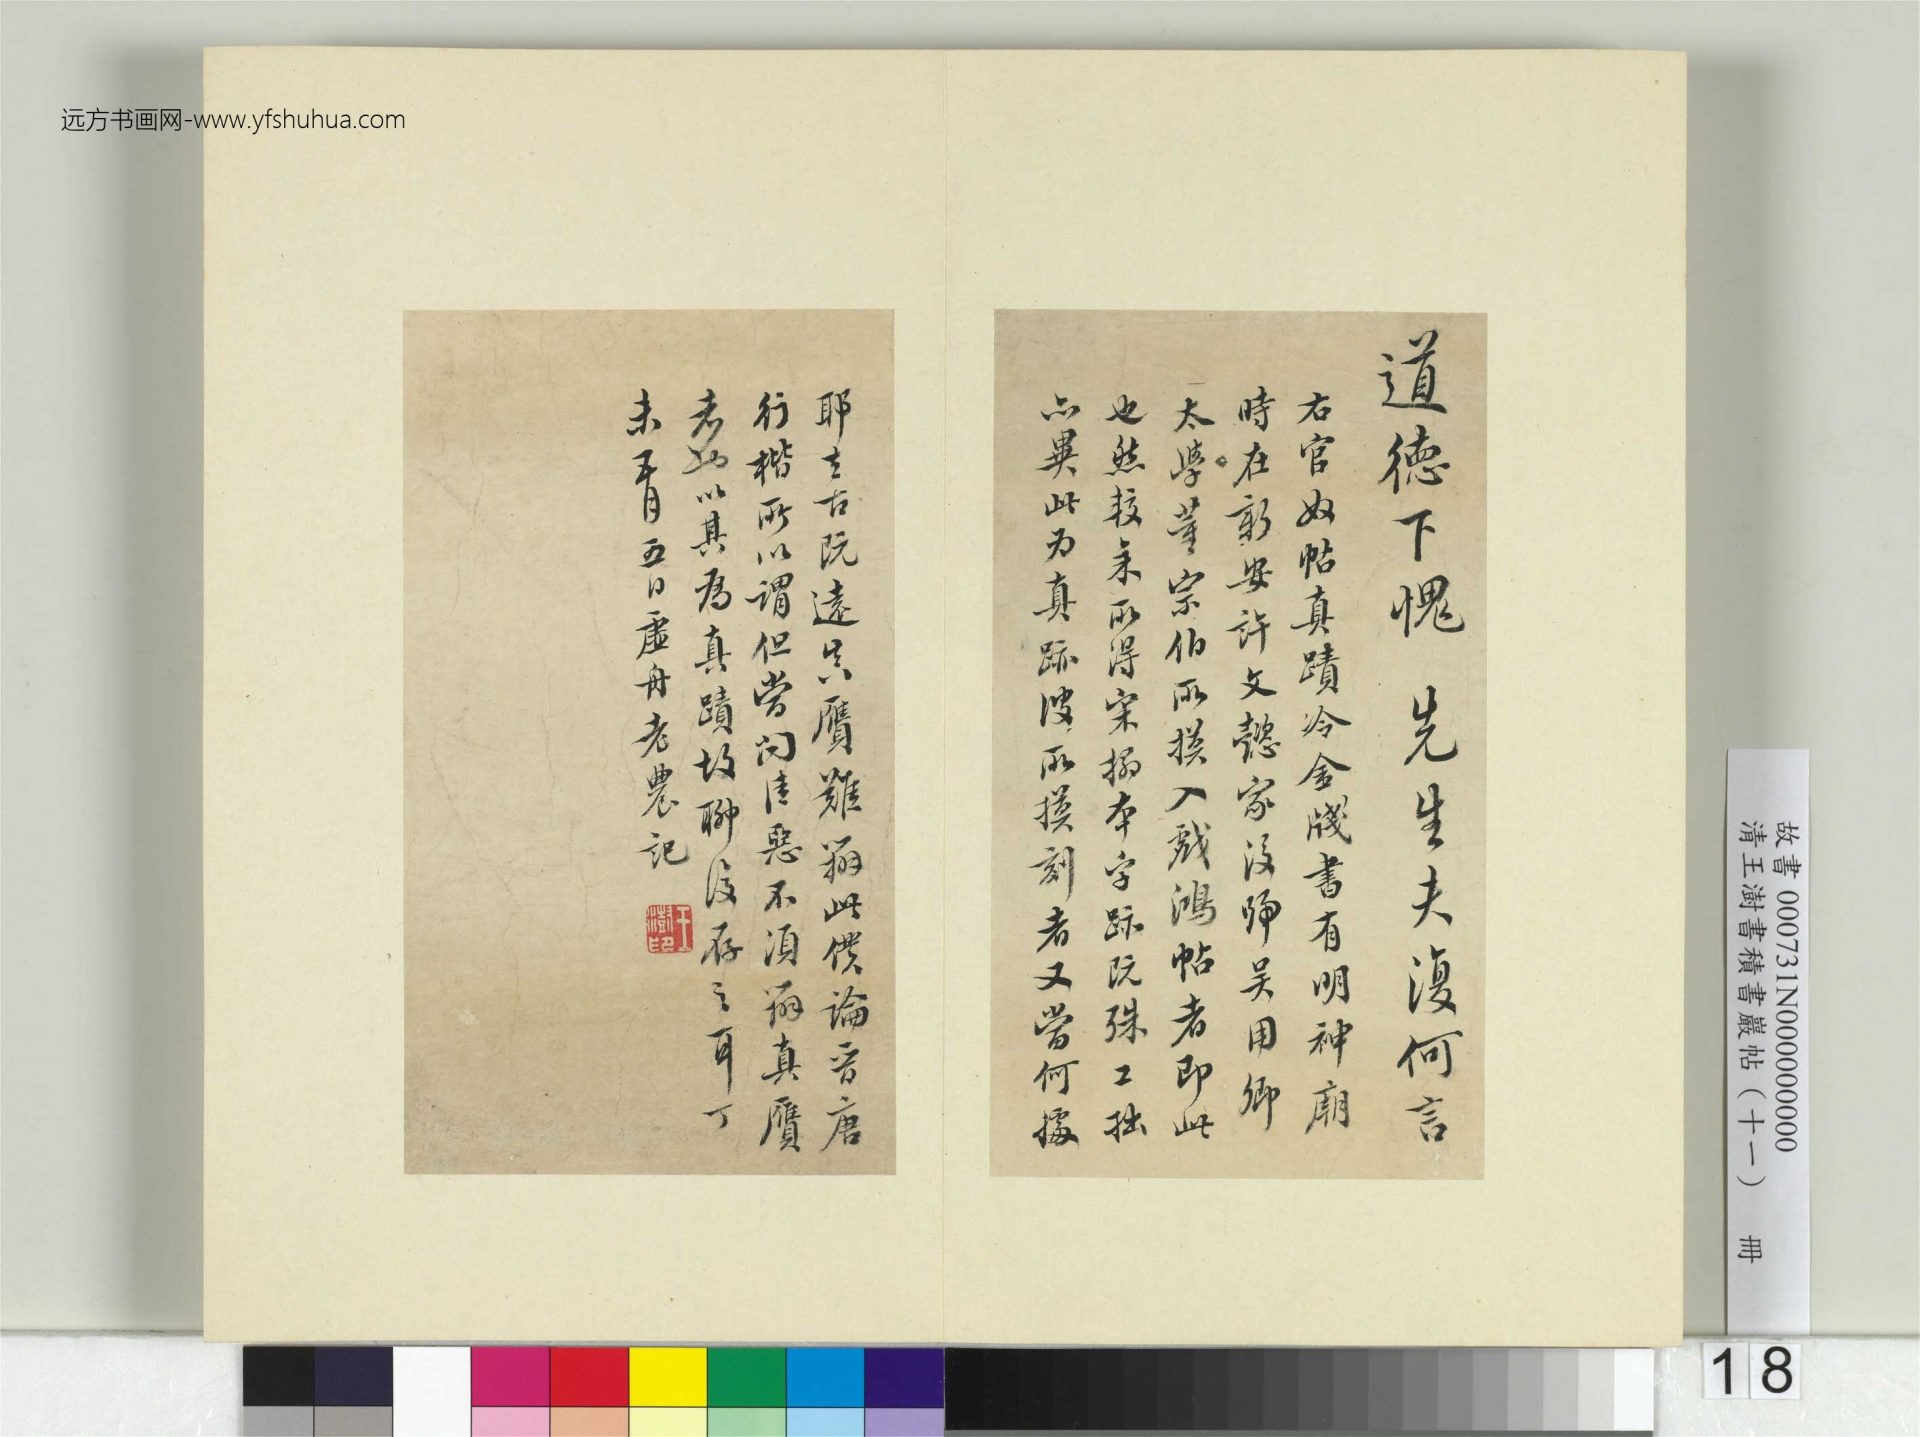 远方书画网-www.yfshuhua.com
道德下愧 先生夫復何言
右官奴帖真蹟冷金牋書有明神廟
時在新安許文懿家後歸吴用卿
太學董宗伯所摸入戲鴻帖者即此
也然較余所得宋搨本字跡既殊工拙
亦異此为真跡彼所摸刻者又當何據
耶去古既遠真贗難辨此僕論晋唐
行楷所以謂但當問佳惡不須辨真贗
者 以其為真蹟故聊復存之耳丁
未五月五日虛舟老農記
王澍印
故書 000731N000000000
清王澍書積書巖帖（十一） 冊
18